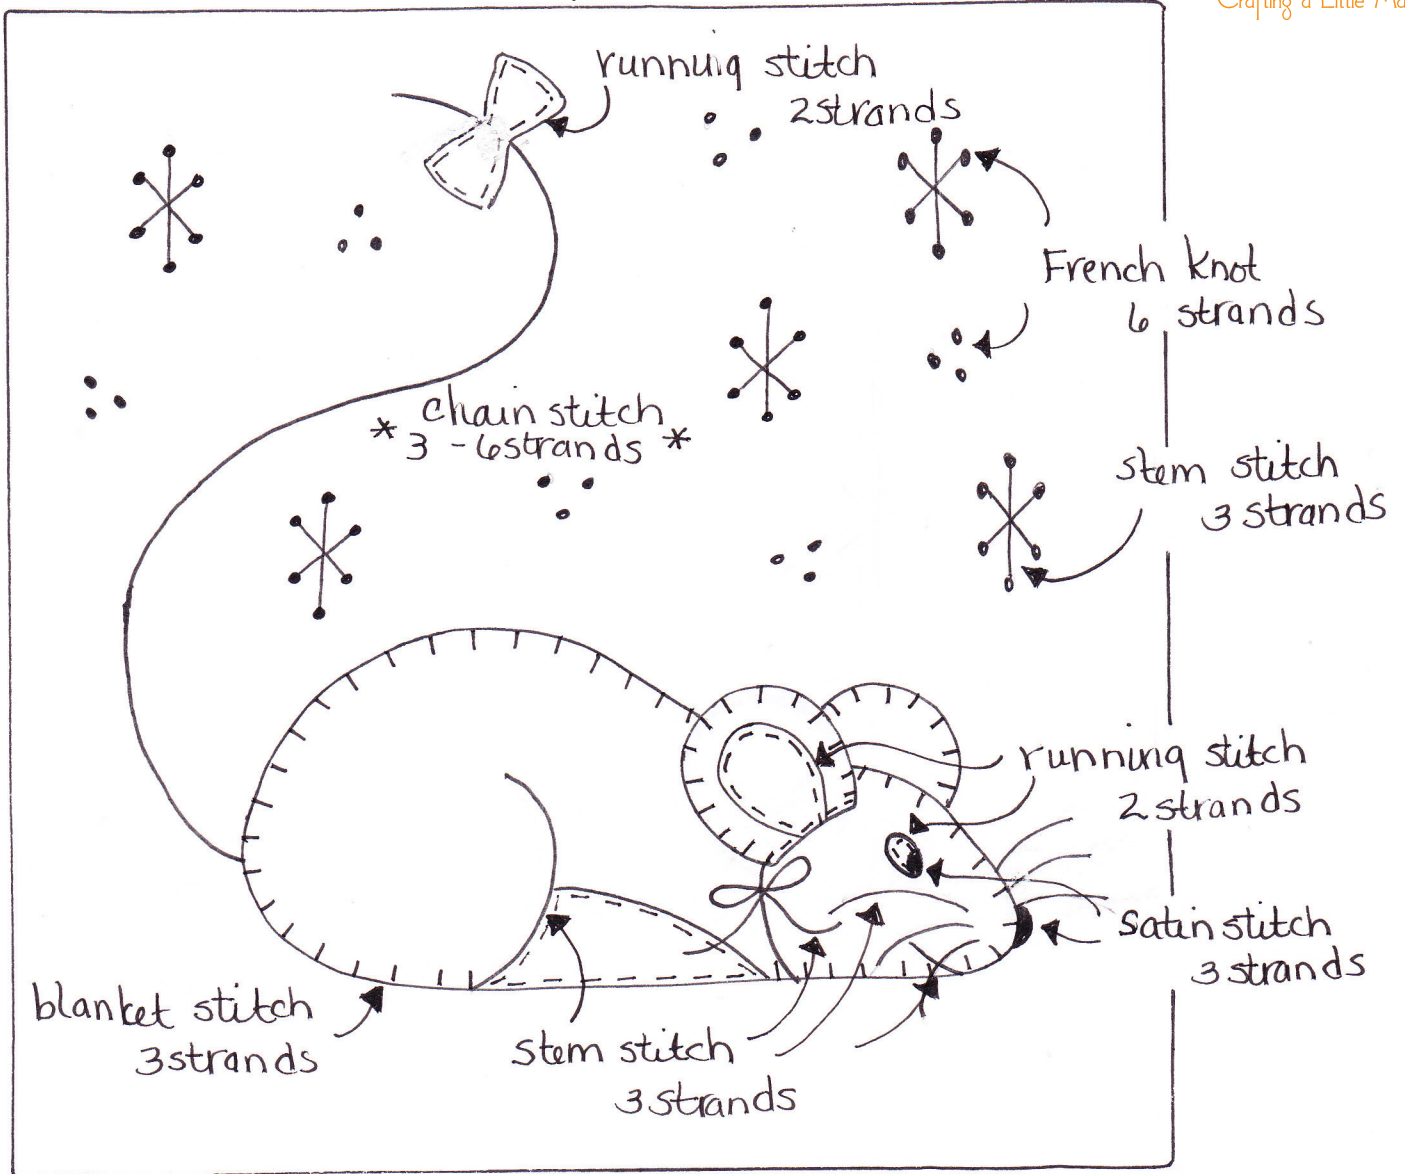 Crafting a Little Ma
running stitch
2 strands
French knot
6 strands
* chain stitch *
3 - 6 strands
stem stitch
3 strands
running stitch
2 strands
satin stitch
3 strands
blanket stitch
3 strands
stem stitch
3 strands